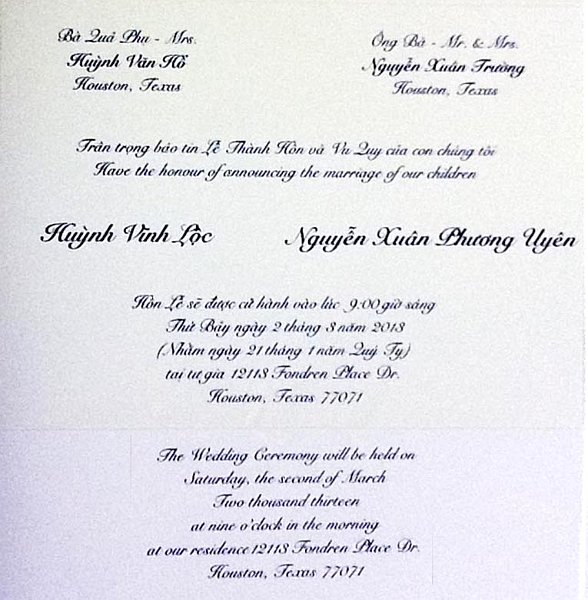 Bà Quả Phụ - Mrs.
Huỳnh Văn Hổ
Houston, Texas
Ông Bà - Mr. & Mrs.
Nguyễn Xuân Trường
Houston, Texas
Trân trọng báo tin Lễ Thành Hôn và Vu Quy của con chúng tôi
Have the honour of announcing the marriage of our children
Huỳnh Vĩnh Lộc
Nguyễn Xuân Phương Uyên
Hôn Lễ sẽ được cử hành vào lúc 9:00 giờ sáng
Thứ Bảy ngày 2 tháng 3 năm 2013
(Nhằm ngày 21 tháng 1 năm Quý Tỵ)
tại tư gia 12113 Fondren Place Dr.
Houston, Texas 77071
The Wedding Ceremony will be held on
Saturday, the second of March
Two thousand thirteen
at nine o'clock in the morning
at our residence 12113 Fondren Place Dr.
Houston, Texas 77071